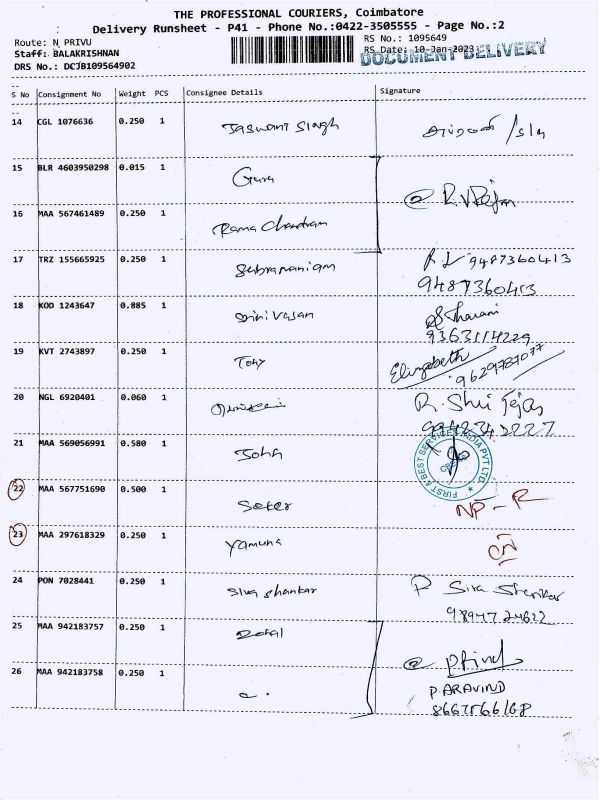 THE PROFESSIONAL COURIERS, Coimbatore
Delivery Runsheet - P41 - Phone No.:0422-3505555 - Page No.:2
Route: N_PRIVU
RS No.: 1095649
Staff: BALAKRISHNAN
RS Date: 10-Jan-2023
DOCUMENT DELIVERY
DRS No.: DCJB109564902
S No Consignment No Weight PCS Consignee Details Signature
14 CGL 1076636 0.250 1 Jaswant Singh
15 BLR 4603950298 0.015 1 Guru
16 MAA 567461489 0.250 1 Rama Chandran
17 TRZ 155665925 0.250 1 Subramaniam 9487360413
9487360413
18 KOD 1243647 0.885 1 Srinivasan
9363114229
19 KVT 2743897 0.250 1 Tony Elizabeth
9629787077
20 NGL 6920401 0.060 1 R. Shri Tejas
9942342227
21 MAA 569056991 0.580 1 John
FIRST & BEST SERVICES INDIA PVT LTD.
22 MAA 567751690 0.500 1 Seker NP-R
23 MAA 297618329 0.250 1 Yamuna
24 PON 7028441 0.250 1 Siva Shankar P Siva Shankar
9894724622
25 MAA 942183757 0.250 1
P ARAVIND
26 MAA 942183758 0.250 1
8667566168